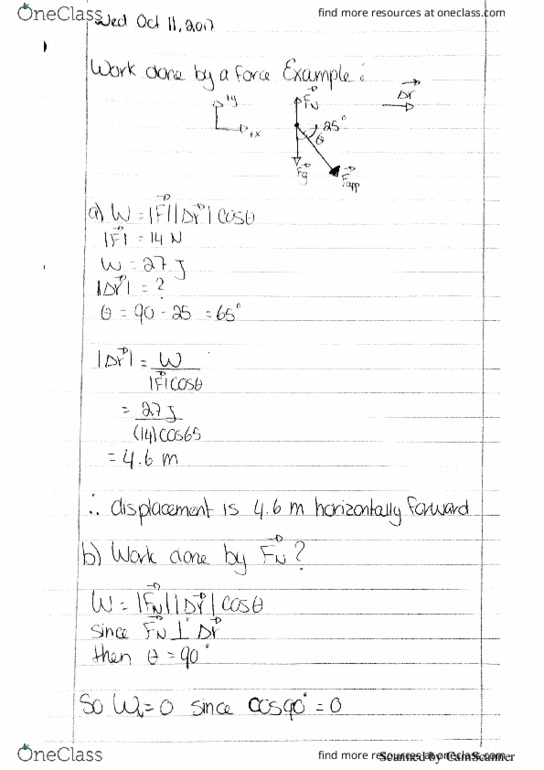 OneClass
find more resources at oneclass.com
Wed Oct 11, 2017
Work done by a force Example:
+y
+x
F⃗N
25°
θ
F⃗g
F⃗app
Δr⃗
a) W = |F⃗||Δr⃗| cosθ
|F⃗| = 14 N
W = 27 J
|Δr⃗| = ?
θ = 90 - 25 = 65°
|Δr⃗| = W
|F⃗|cosθ
= 27 J
(14)cos65
= 4.6 m
∴ displacement is 4.6 m horizontally forward
b) Work done by F⃗N?
W = |F⃗N||Δr⃗| cosθ
since F⃗N ⊥ Δr⃗
then θ = 90°
So WN = 0 since cos90° = 0
OneClass
find more resources at oneclass.com
Scanned by CamScanner